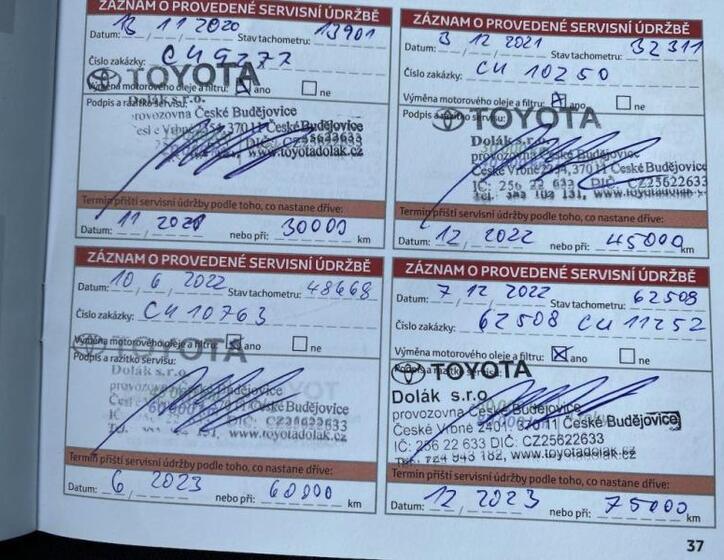 ZÁZNAM O PROVEDENÉ SERVISNÍ ÚDRŽBĚ
Datum: 13 / 11 / 2020 Stav tachometru: 13901
Číslo zakázky: CU 9277
TOYOTA
Výměna motorového oleje a filtru: ☒ ano ☐ ne
Podpis a razítko servisu:
Dolák s.r.o.
provozovna České Budějovice
370 11 České Budějovice
DIČ: CZ25622633
www.toyotadolak.cz
Termín příští servisní údržby podle toho, co nastane dříve:
Datum: 11 / 2021 nebo při: 30000 km
ZÁZNAM O PROVEDENÉ SERVISNÍ ÚDRŽBĚ
Datum: 3 / 12 / 2021 Stav tachometru: 32311
Číslo zakázky: CU 10250
Výměna motorového oleje a filtru: ☒ ano ☐ ne
Podpis a razítko servisu:
TOYOTA
Dolák s.r.o.
provozovna České Budějovice
České Vrbné 370 11 České Budějovice
IČ: 256 22 633 DIČ: CZ25622633
www.toyotadolak.cz
Termín příští servisní údržby podle toho, co nastane dříve:
Datum: 12 / 2022 nebo při: 45000 km
ZÁZNAM O PROVEDENÉ SERVISNÍ ÚDRŽBĚ
Datum: 10 / 6 / 2022 Stav tachometru: 48668
Číslo zakázky: CU 10763
Výměna motorového oleje a filtru: ☒ ano ☐ ne
TOYOTA
Podpis a razítko servisu:
Dolák s.r.o.
provozovna České Budějovice
370 11 České Budějovice
CZ25622633
www.toyotadolak.cz
Termín příští servisní údržby podle toho, co nastane dříve:
Datum: 6 / 2023 nebo při: 60000 km
ZÁZNAM O PROVEDENÉ SERVISNÍ ÚDRŽBĚ
Datum: 7 / 12 / 2022 Stav tachometru: 62508
Číslo zakázky: 62508 CU 11252
Výměna motorového oleje a filtru: ☒ ano ☐ ne
Podpis a razítko servisu:
TOYOTA
Dolák s.r.o.
provozovna České Budějovice
České Vrbné 2401, 370 11 České Budějovice
IČ: 256 22 633 DIČ: CZ25622633
www.toyotadolak.cz
Termín příští servisní údržby podle toho, co nastane dříve:
Datum: 12 / 2023 nebo při: 75000 km
37